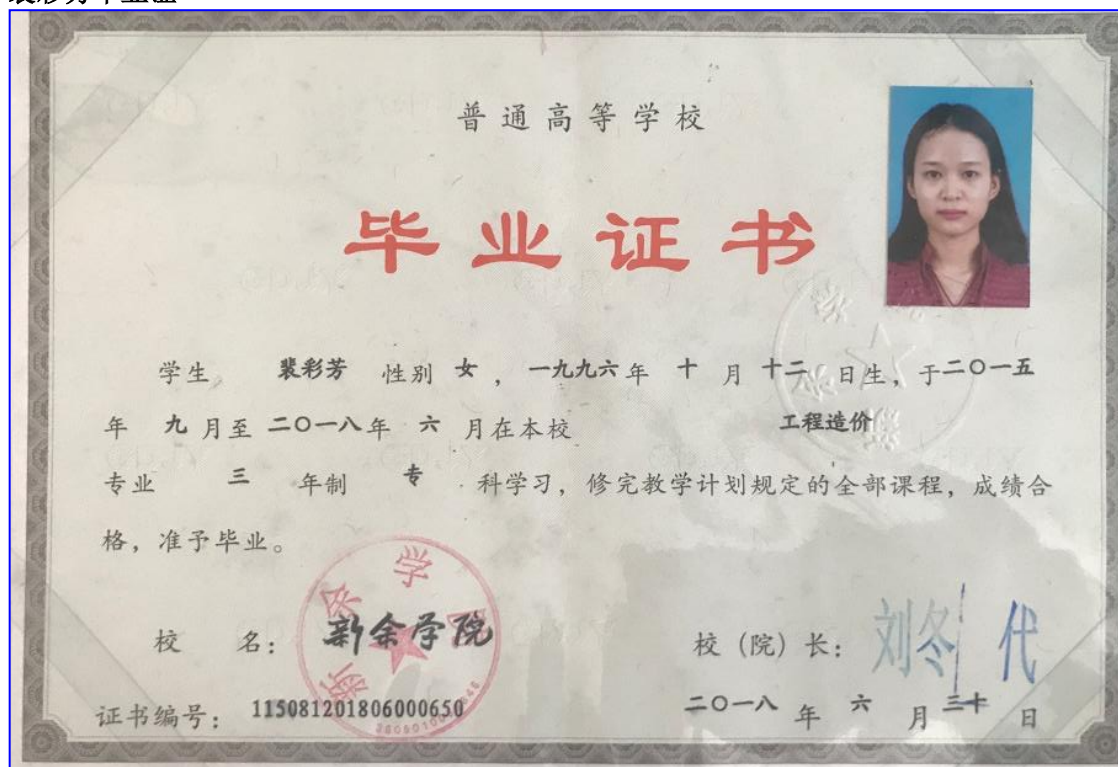 普通高等学校
毕业证书
学生 裴彩芳 性别 女 ，一九九六年 十 月 十二 日生，于二〇一五
年 九 月至 二〇一八年 六 月在本校 工程造价
专业 三 年制 专 科学习，修完教学计划规定的全部课程，成绩合
格，准予毕业。
校 名： 新余学院
校（院）长： 刘冬代
证书编号： 115081201806000650
二〇一八 年 六 月 三十 日